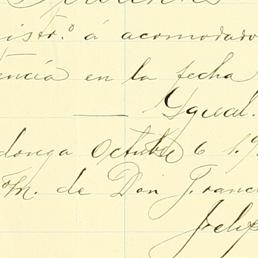 istr.º á acomodado
encia en la fecha
Ygual.
donga Octubre 6 1.9
de Don Franc
Felip